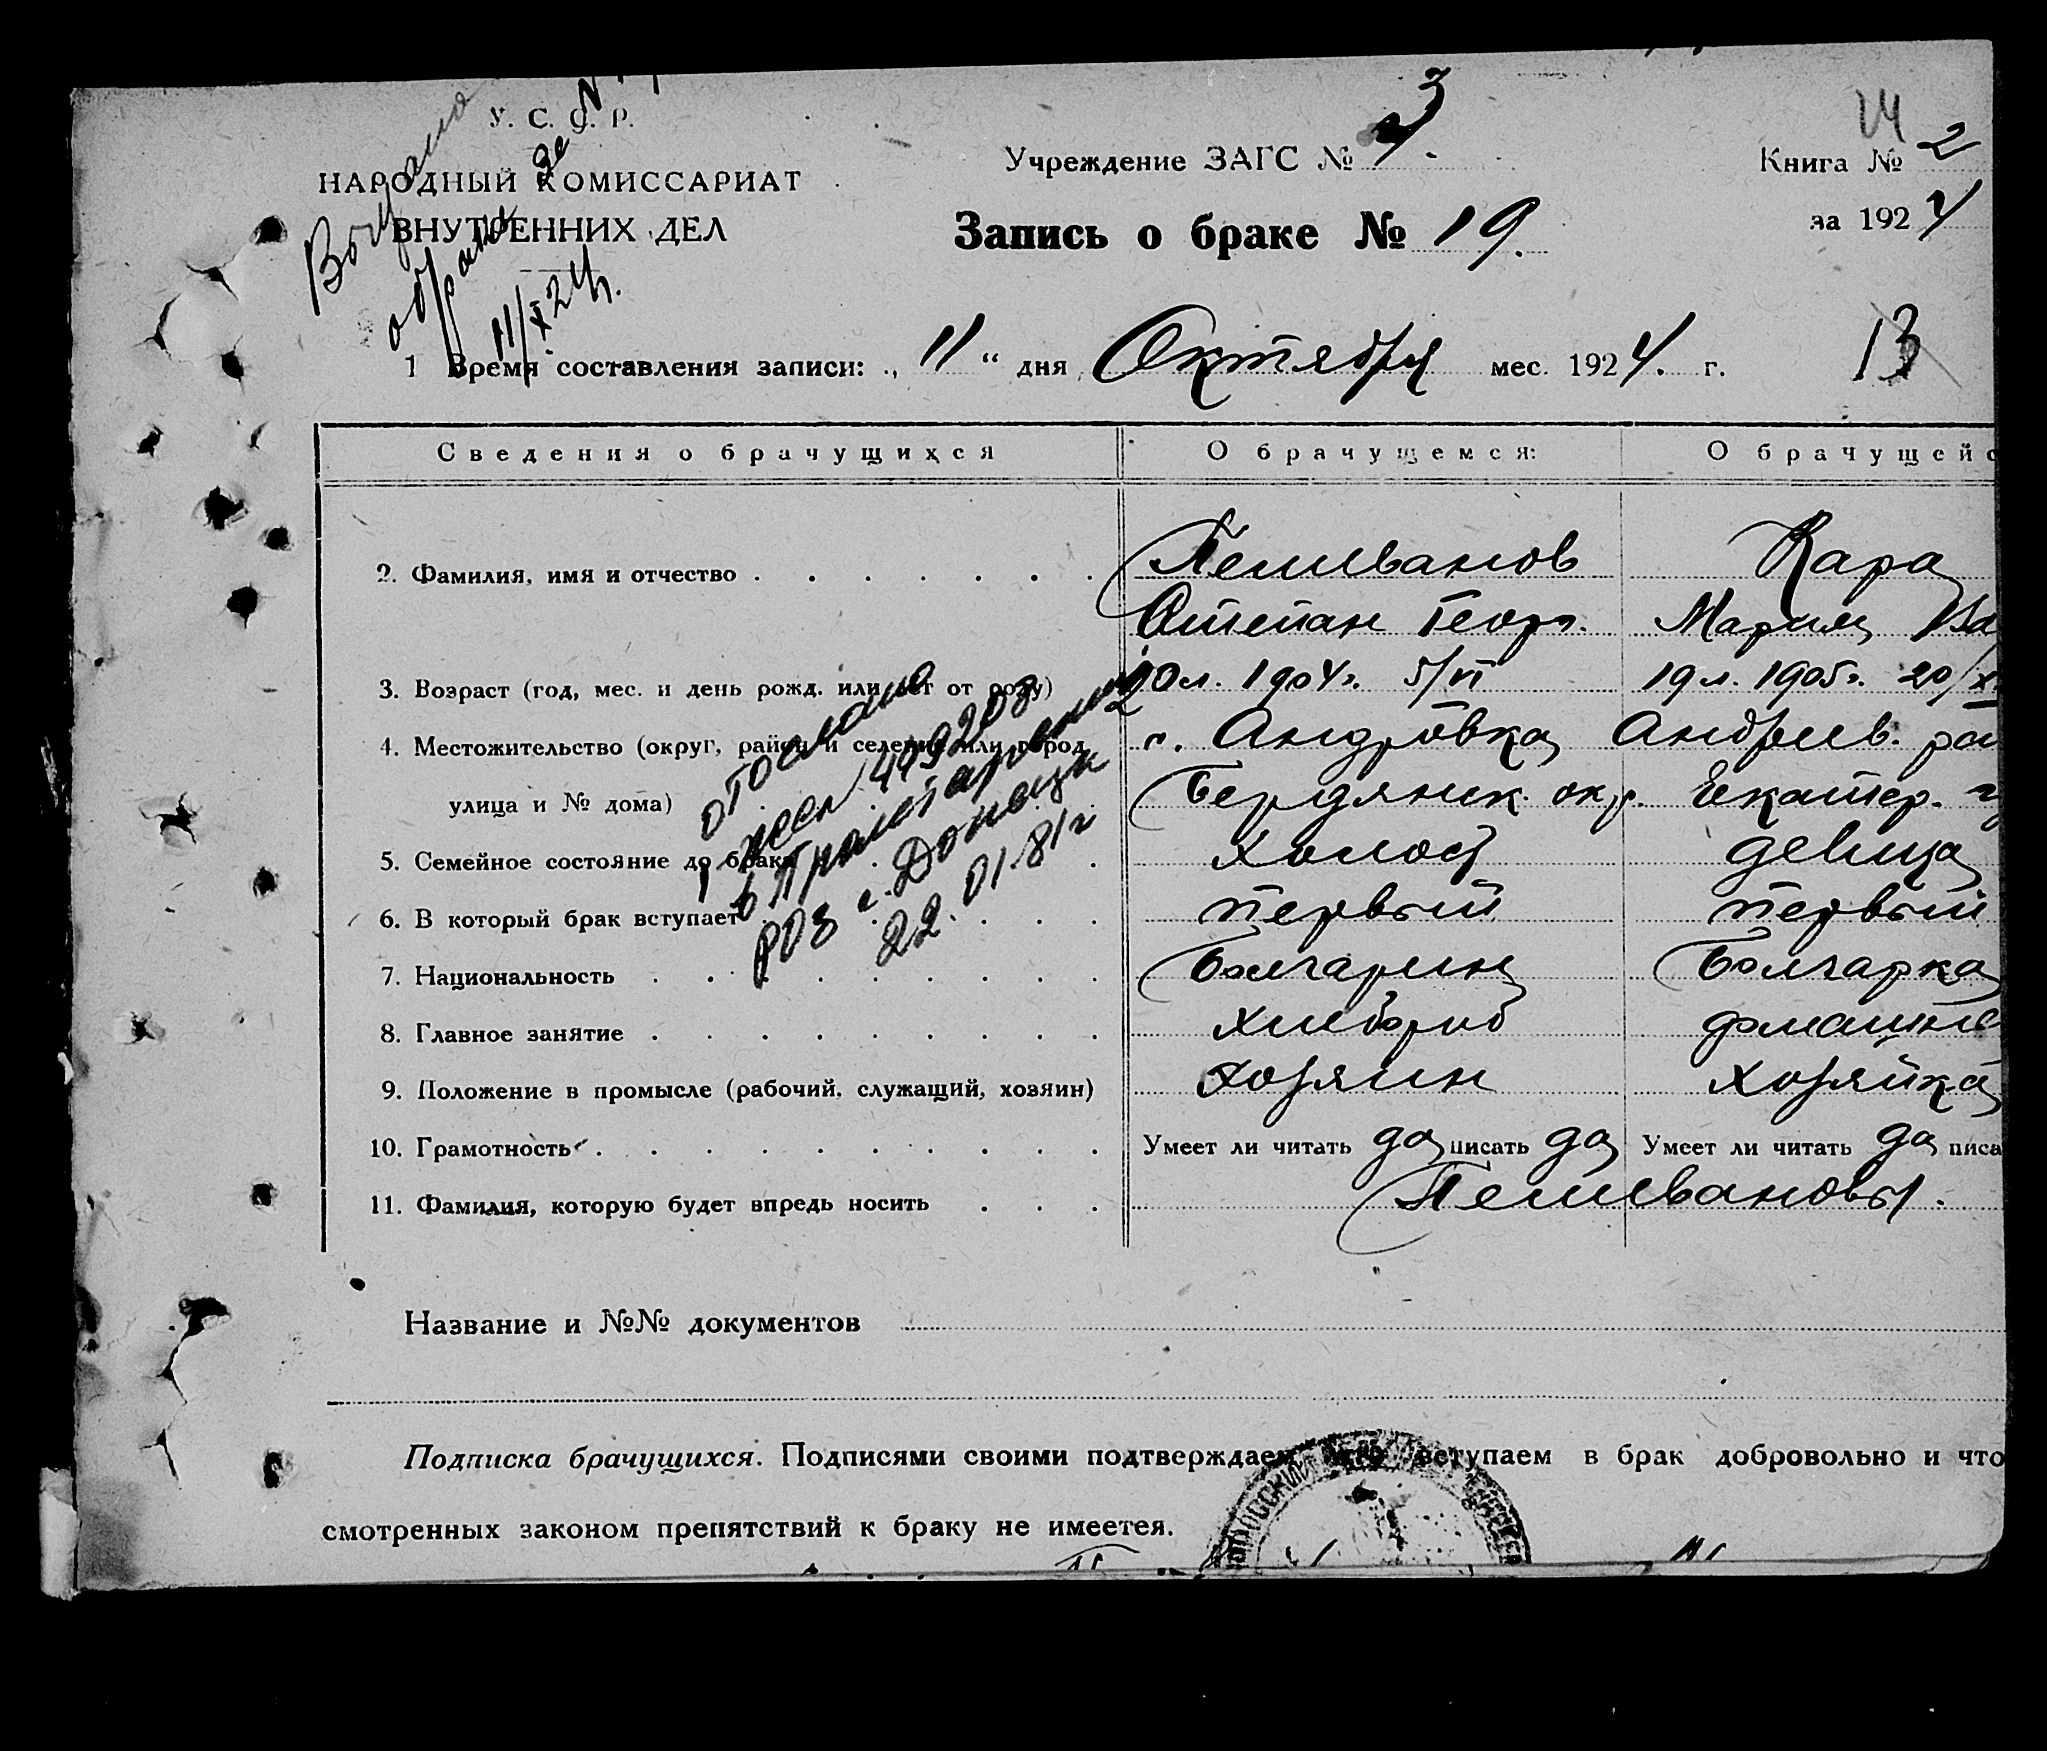 У. С. С. Р.
НАРОДНЫЙ КОМИССАРИАТ
ВНУТРЕННИХ ДЕЛ
о браке за №
11/X 24 г.
Учреждение ЗАГС № 3
14
Книга № 2
за 1924
Запись о браке № 19.
13
1 Время составления записи: „11“ дня Октября мес. 1924. г.
Сведения о брачущихся О брачущемся: О брачущейс
2. Фамилия, имя и отчество Пеливанов Кара
Степан Георг. Мария Ва
3. Возраст (год, мес. и день рожд. или лет от роду) 20 л. 1904г. 5/VI 19 л. 1905г. 20/X
4. Местожительство (округ, район и селение или город, с. Андровка Андреев. рай
улица и № дома) Бердянск. окр. Екатер. г
5. Семейное состояние до брака холост девица
6. В который брак вступает первый первый
7. Национальность Болгарин Болгарка
8. Главное занятие хлебороб домашн
9. Положение в промысле (рабочий, служащий, хозяин) хозяин хозяйка
10. Грамотность Умеет ли читать да писать да Умеет ли читать да писа
11. Фамилия, которую будет впредь носить Пеливановы.
отослано
449208
в Пролетарский
г. Донецк
22.01.81г
Название и №№ документов
Подписка брачущихся. Подписями своими подтверждаем, что вступаем в брак добровольно и что
смотренных законом препятствий к браку не имеется.